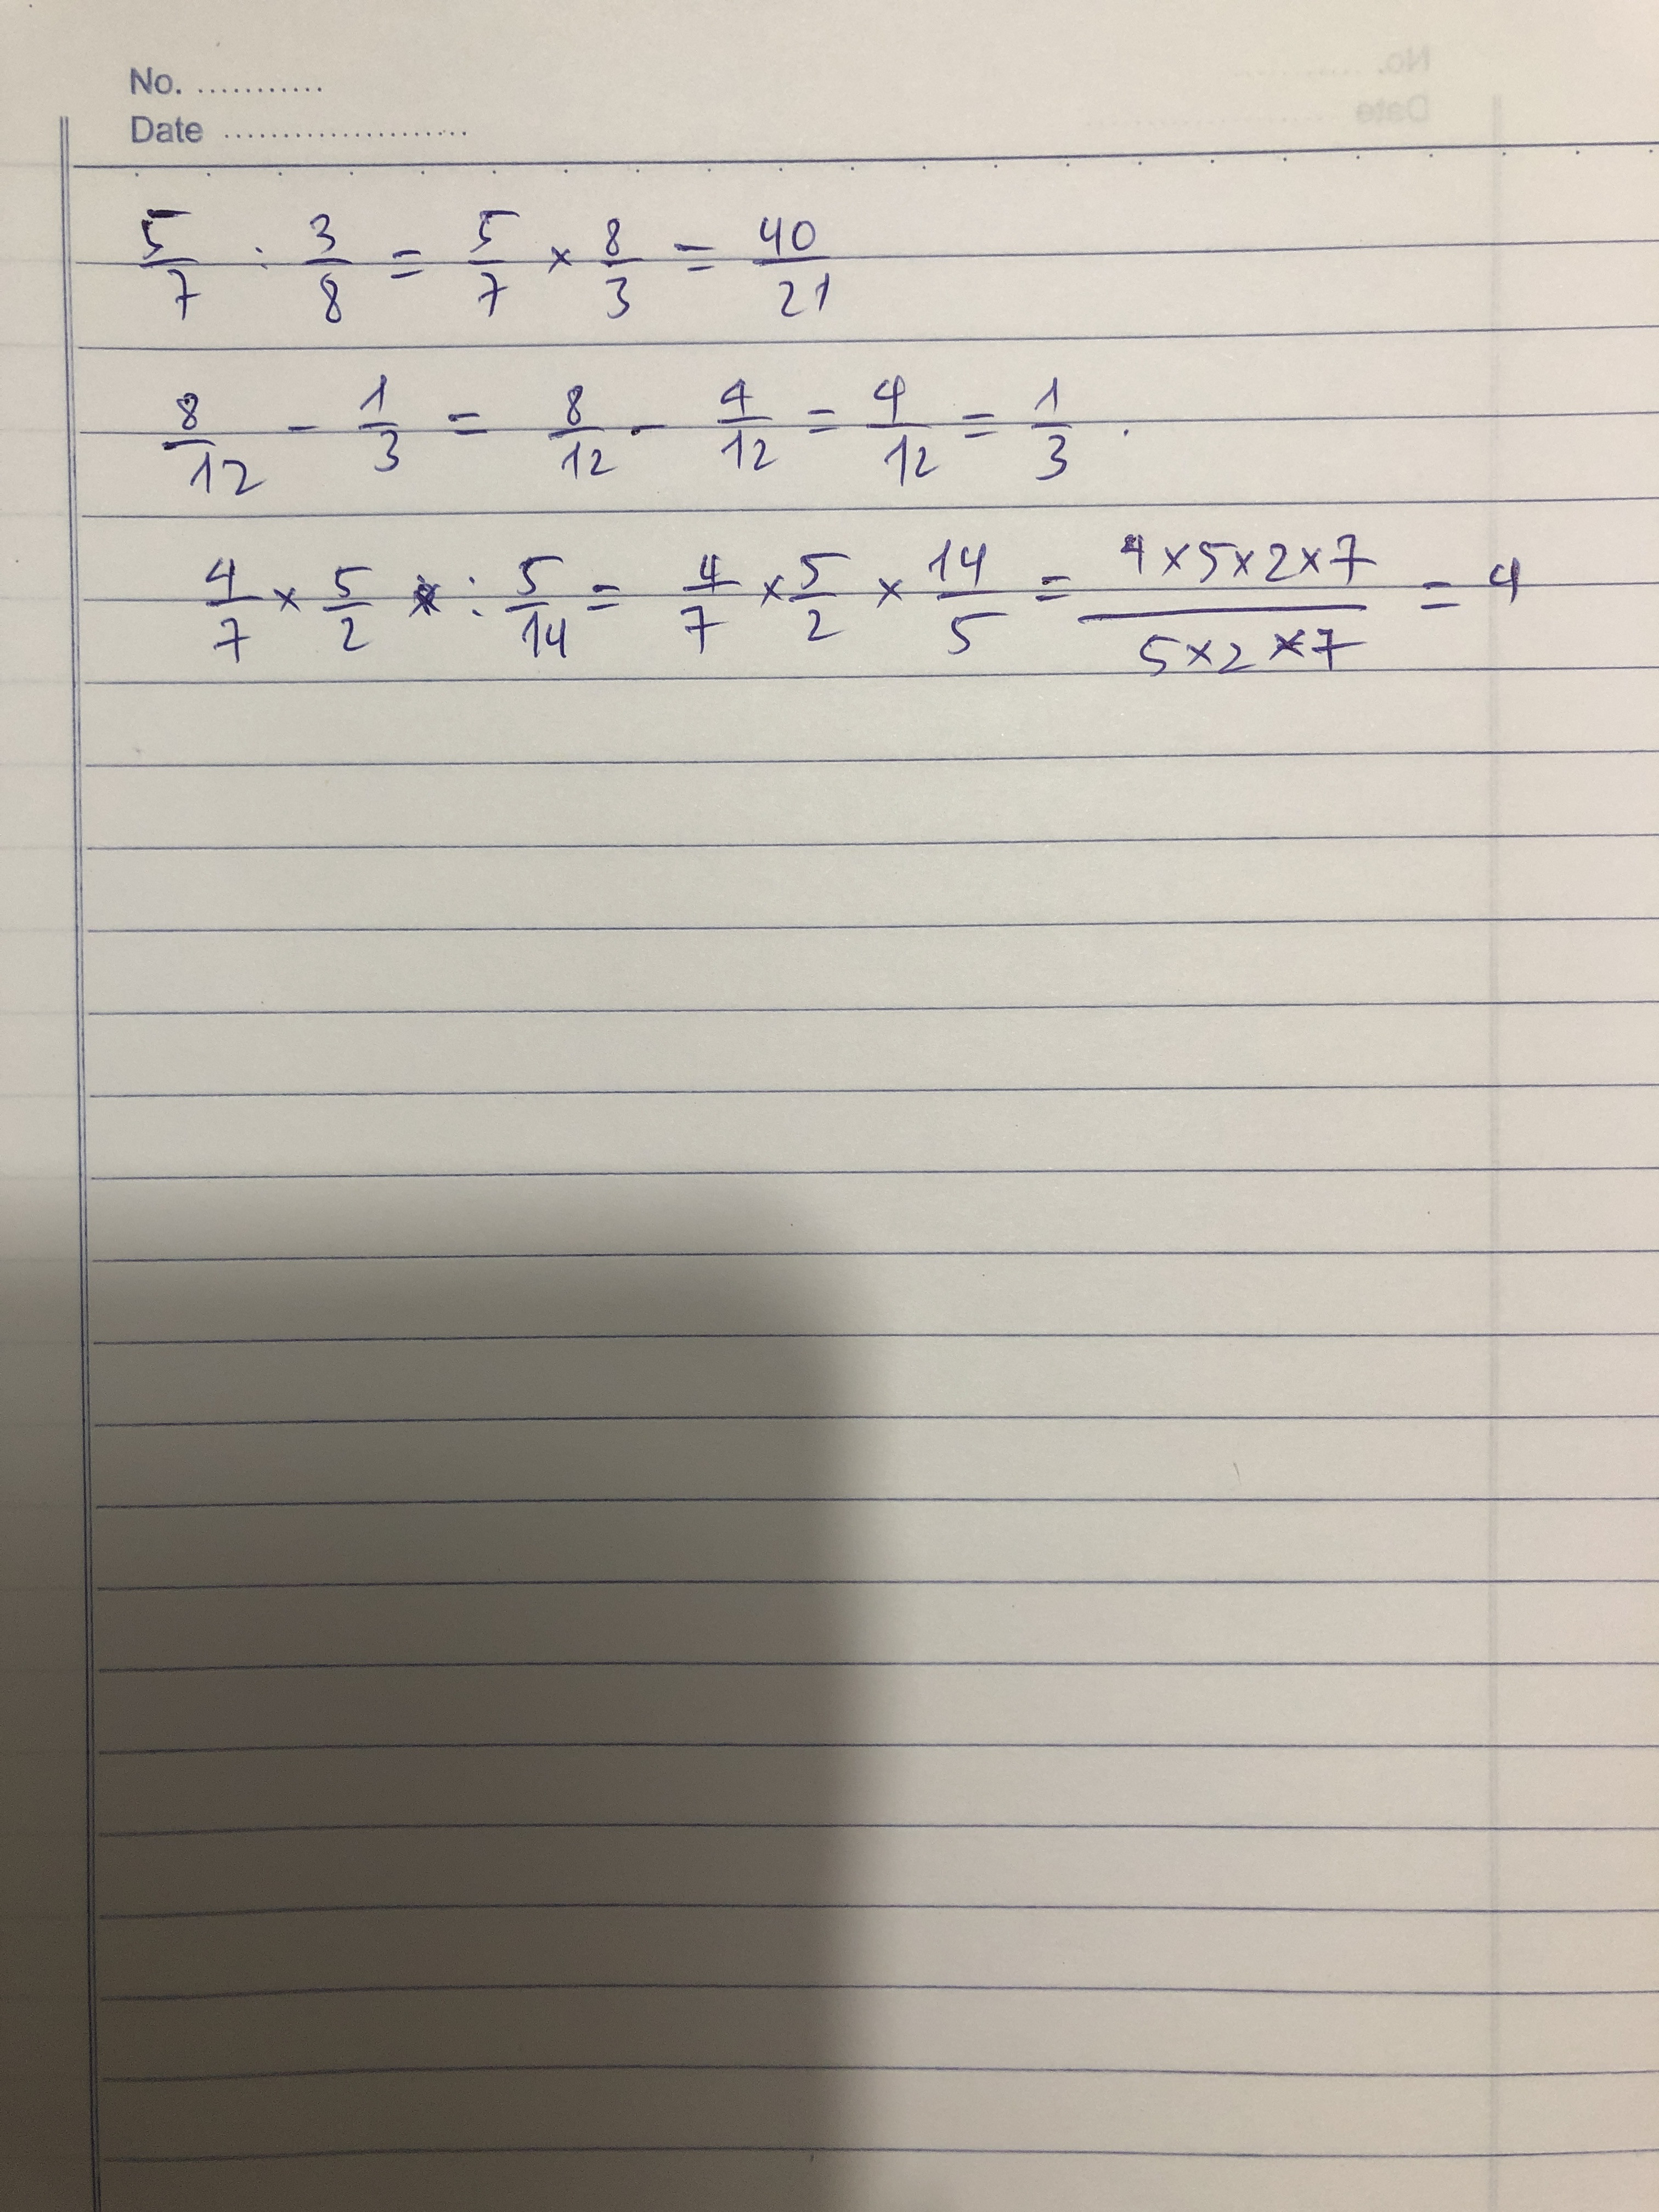 No. ...........
Date .....................
5/7 : 3/8 = 5/7 × 8/3 = 40/21
8/12 - 1/3 = 8/12 - 4/12 = 4/12 = 1/3 .
4/7 × 5/2 : 5/14 = 4/7 × 5/2 × 14/5 = (4×5×2×7)/(5×2×7) = 4